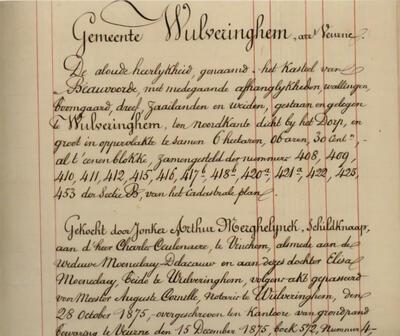 Gemeente Wulveringhem, arr Veurne.
De aloude heerlykheid, genaamd "het Kasteel van
Beauvoorde, met medegaande afhanglykheden, wallingen,
boomgaard, dreef, zaailanden en weiden, gestaan en gelegen
te Wulveringhem, ten noordkante dicht by het Dorp, en
groot in oppervlakte te samen 6 hectaren, 06 aren, 30 centn,
al t'eenen blokke, zamengesteld der nummers 408, 409,
410, 411, 412, 415, 416, 417b, 418b, 420a, 421a, 422, 423,
453 der Sectie B, van het Cadastrale plan.
Gekocht door Jonker Arthur Merghelynck, Schildknaap,
aan d'heer Charles Ceulenaere, te Vinchem, alsmede aan de
weduwe Moeneclay-Delacauw en aan dezes dochter Elisa
Moeneclay, beide te Wulveringhem, volgens akt gepasseerd
voor Meester Auguste Cornille, Notaris te Wulveringhem, den
28 October 1875, overgeschreven ten Kantoore van grondpand
bewaring te Veurne den 15 December 1875, boek 572, Nummer 4-